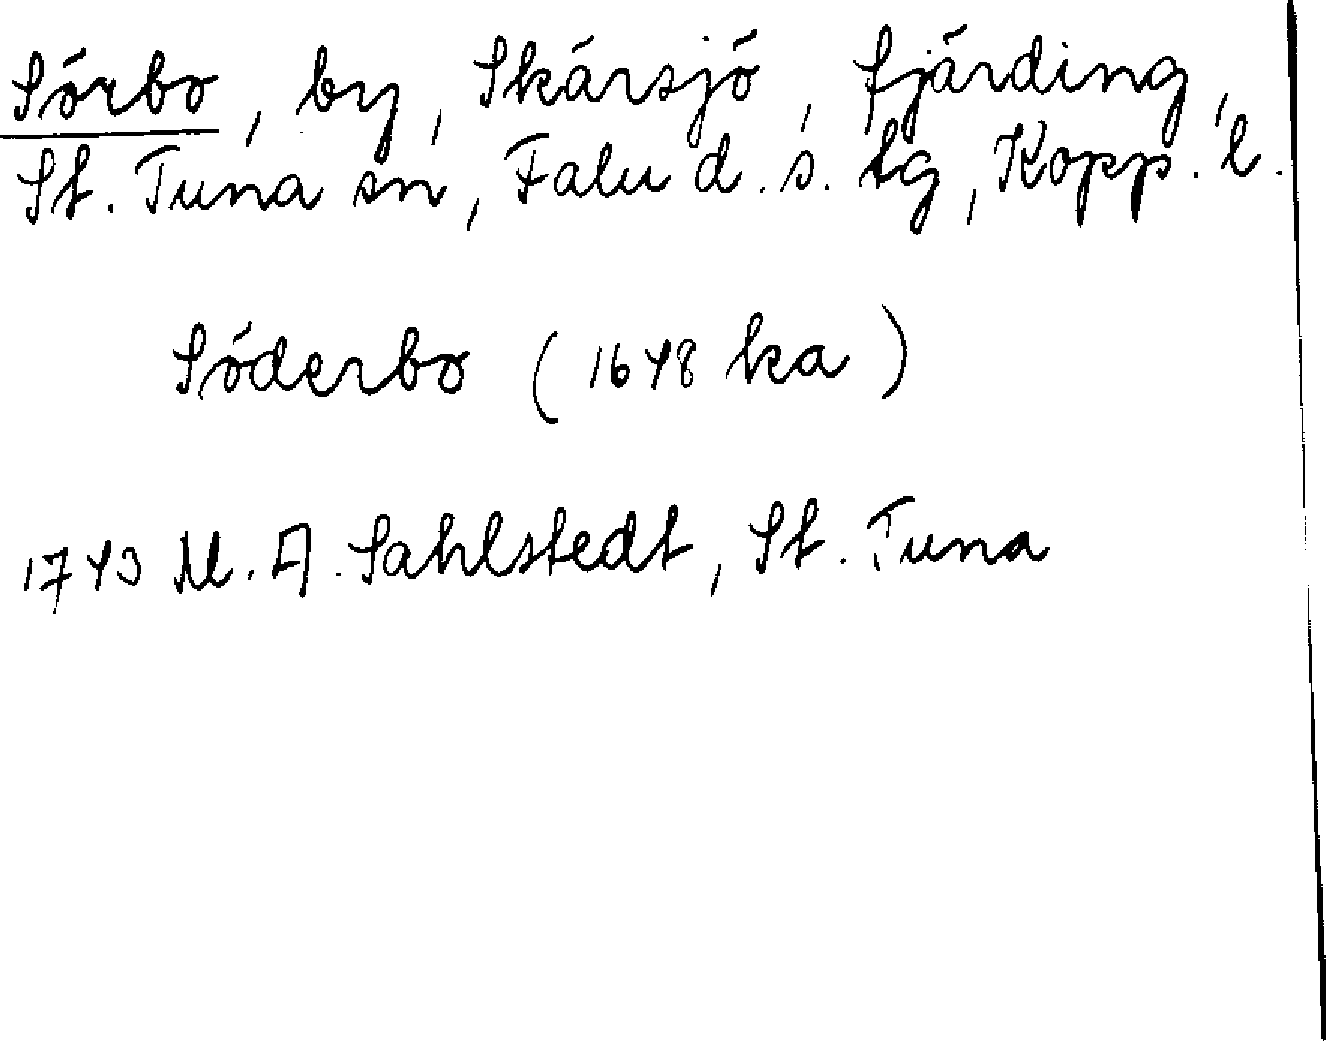 Sörbo, by, Skärsjö, fjärding,
St. Tuna sn, Falu d. s. tg, Kopp. l.
Söderbo (1648 ka)
1743 M. A. Sahlstedt, St. Tuna